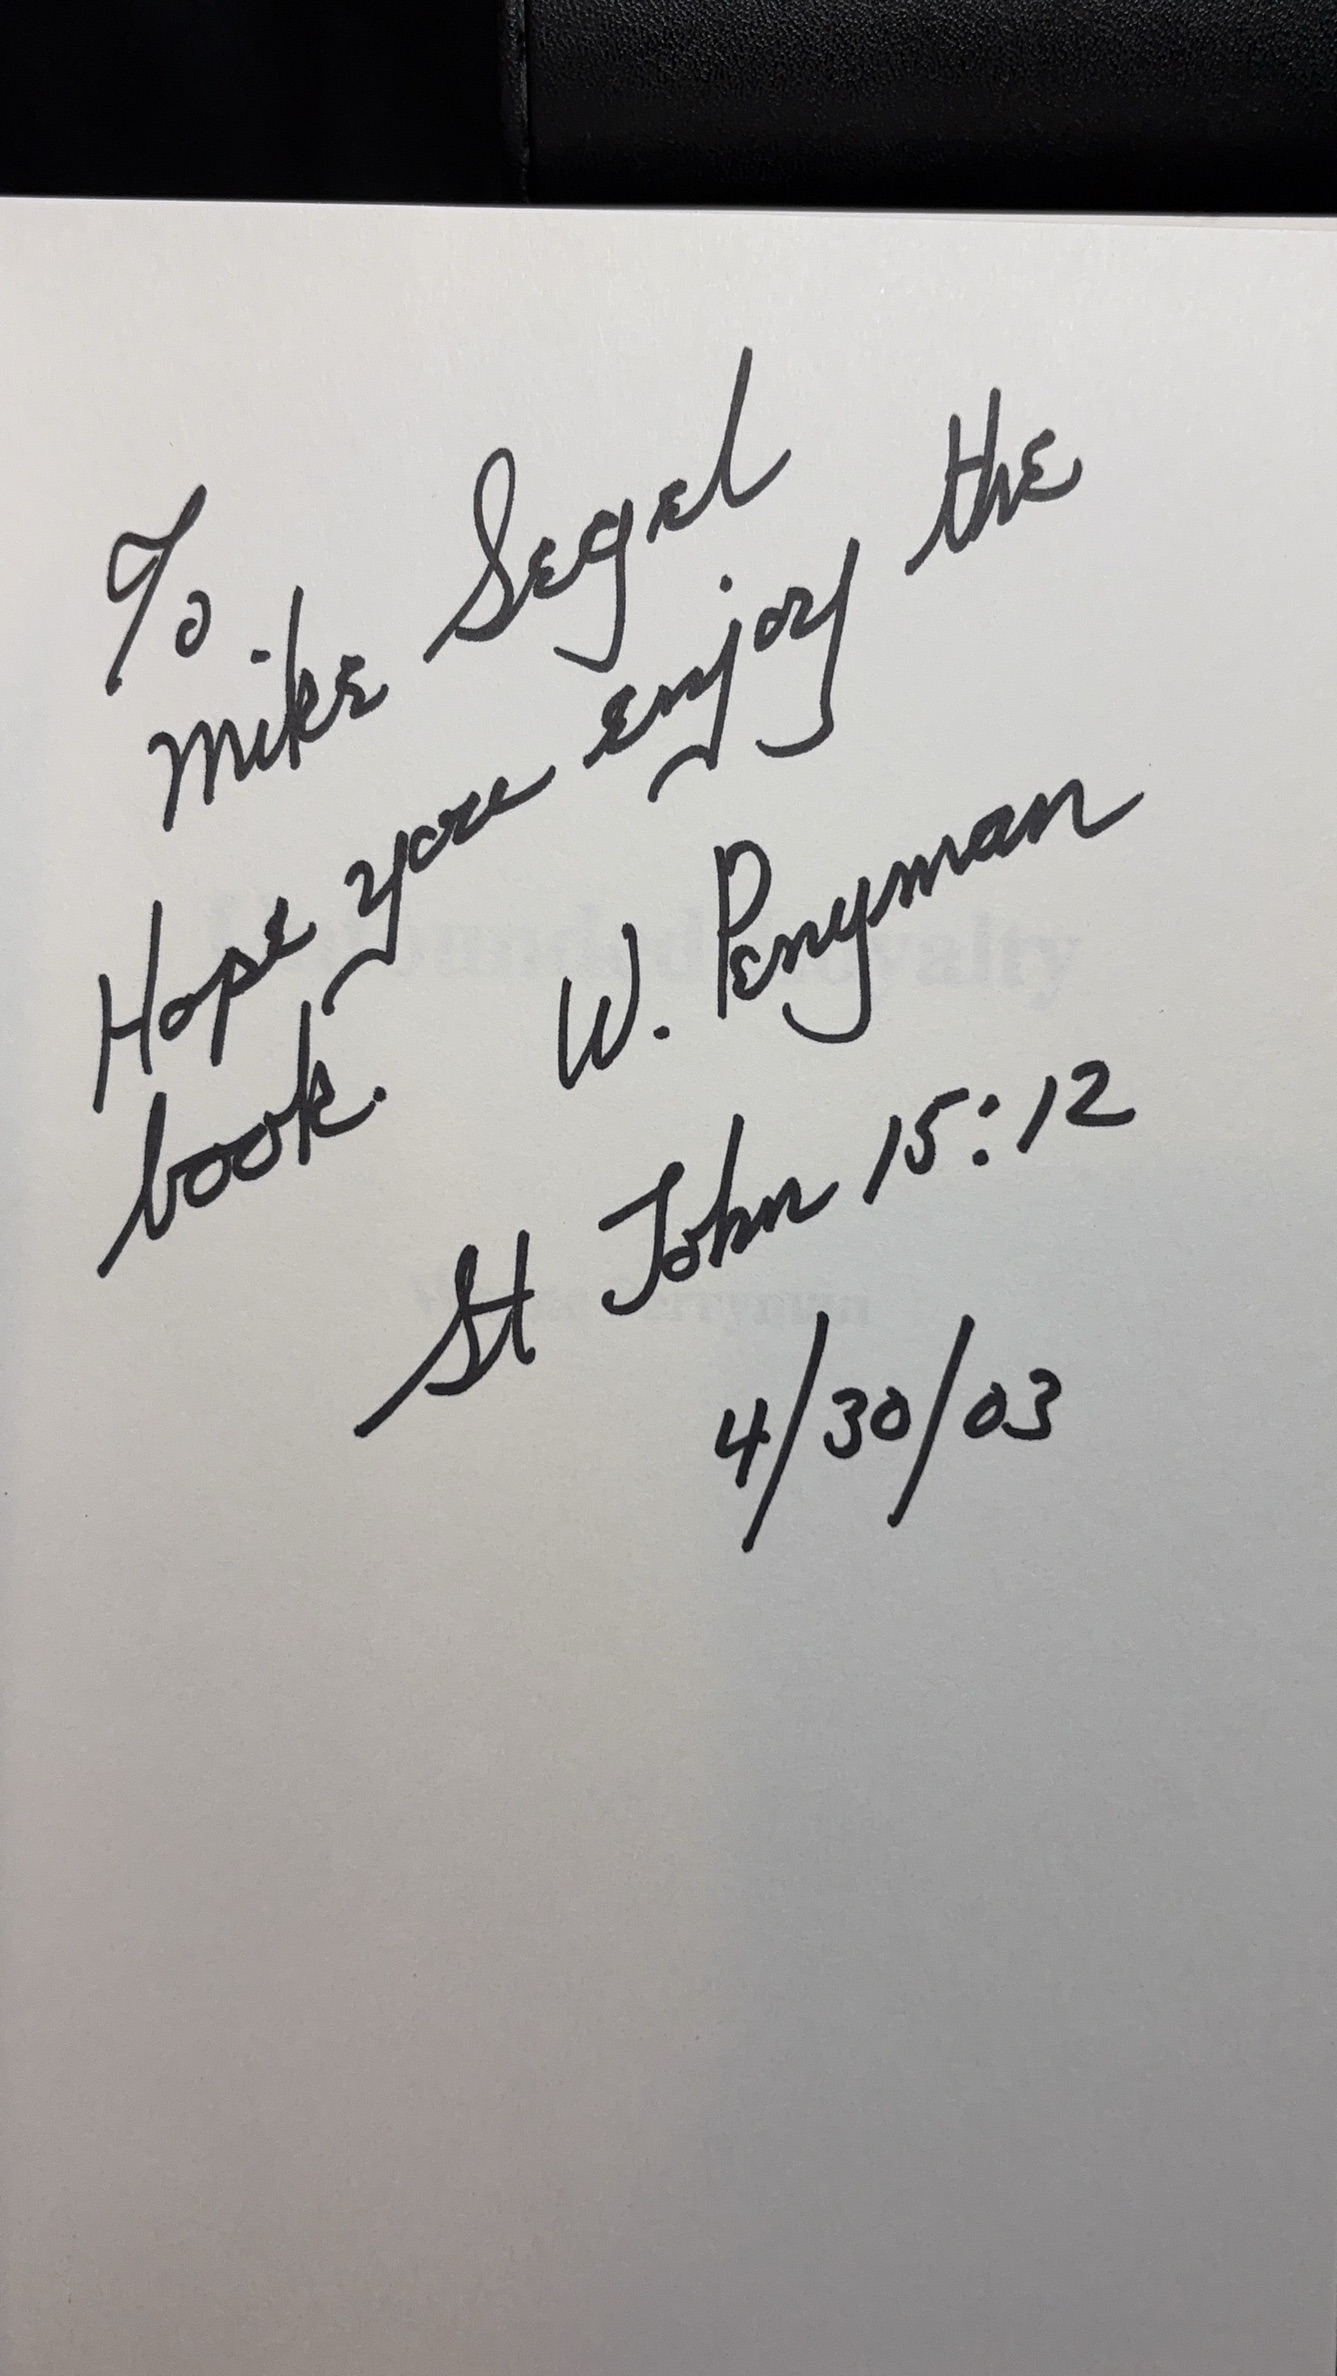 To
Mike Segel
Hope you enjoy the
book.
W. Perryman
St John 15:12
4/30/03